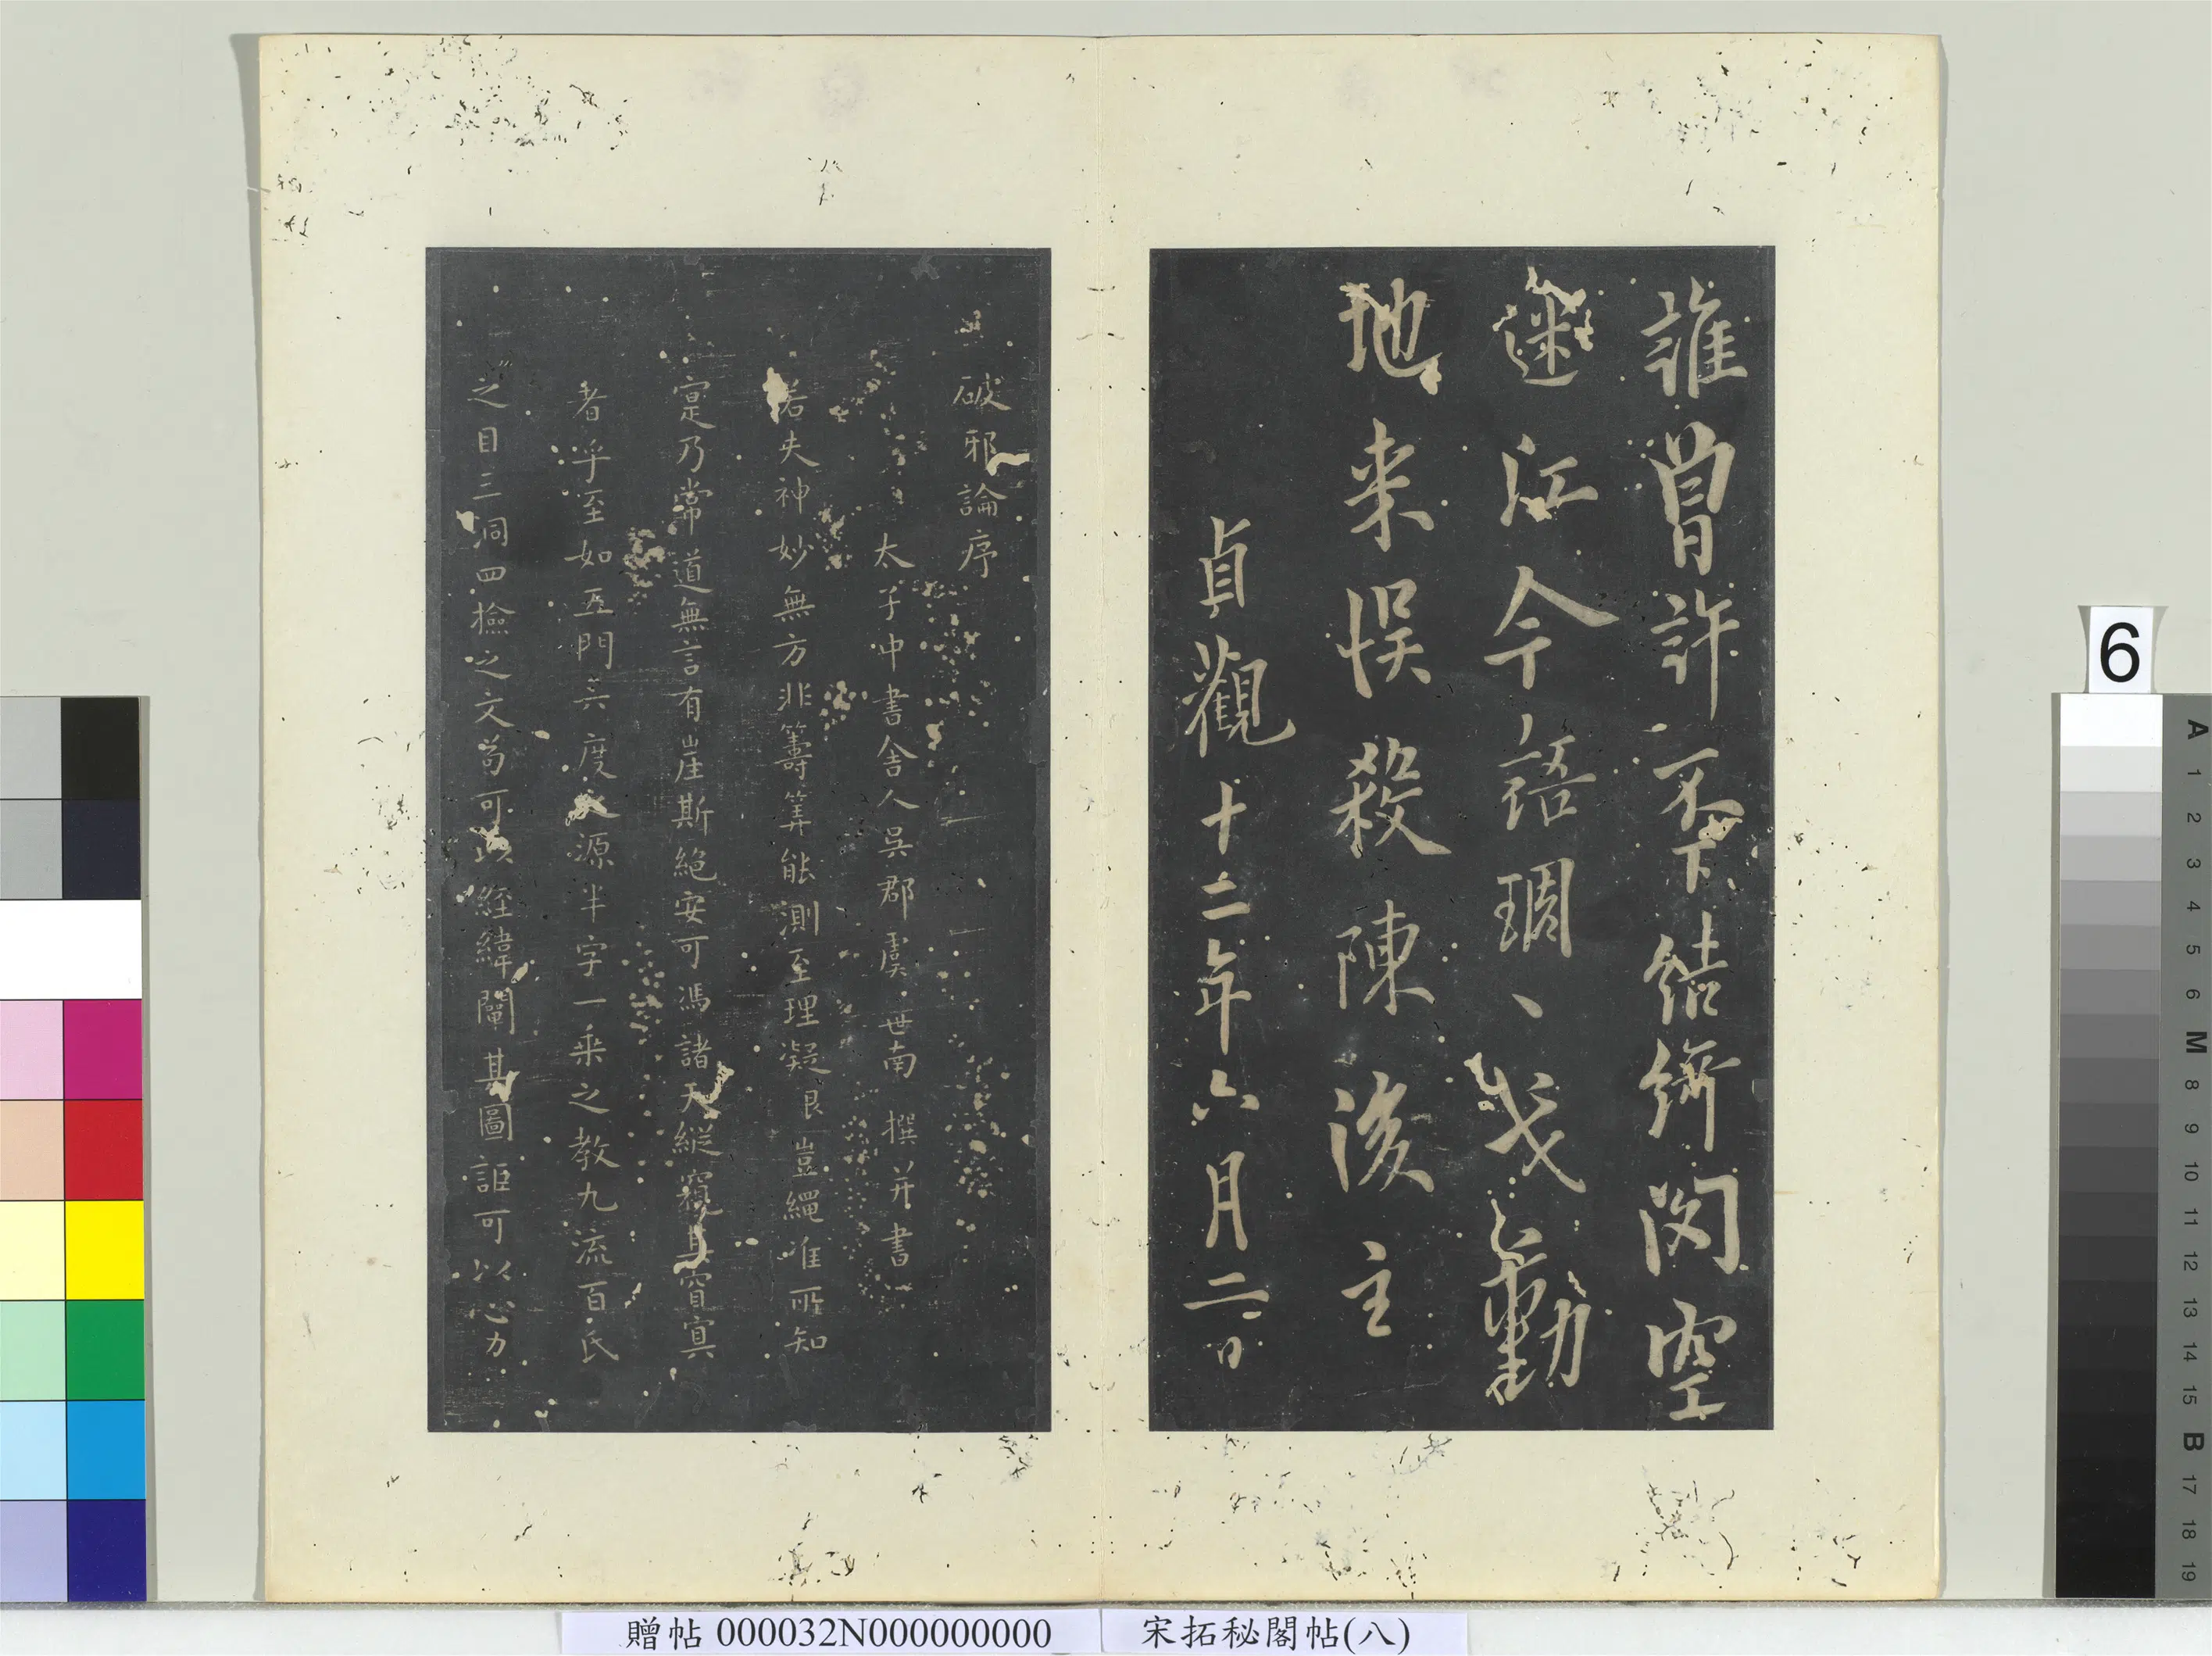 誰曾許不下結綺閣空
迷江令語瓓、戔動
地来悮殺陳後主
貞觀十二年六月二日
破邪論序
太子中書舍人吳郡虞世南撰并書
若夫神妙無方非籌筭能測至理凝邈豈繩准所知
寔乃常道無言有崖斯絕安可馮諸天縱窺其窅冥
者乎至如五門六度之源半字一乘之教九流百氏
之目三洞四檢之文苟可以經緯闡其圖詎可以心力
6
A 1 2 3 4 5 6 M 8 9 10 11 12 13 14 15 B 17 18 19
贈帖 000032N000000000
宋拓秘閣帖(八)